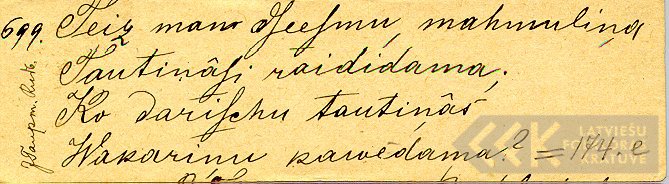 699. Teiz man dseesmu, mahmuliņa
Tautiņâsi raididama;
Ko darischu tautiņâs
Wakariņu kawêdama? = 174. e
LATVIEŠU
FOLKLORAS
KRĀTUVE